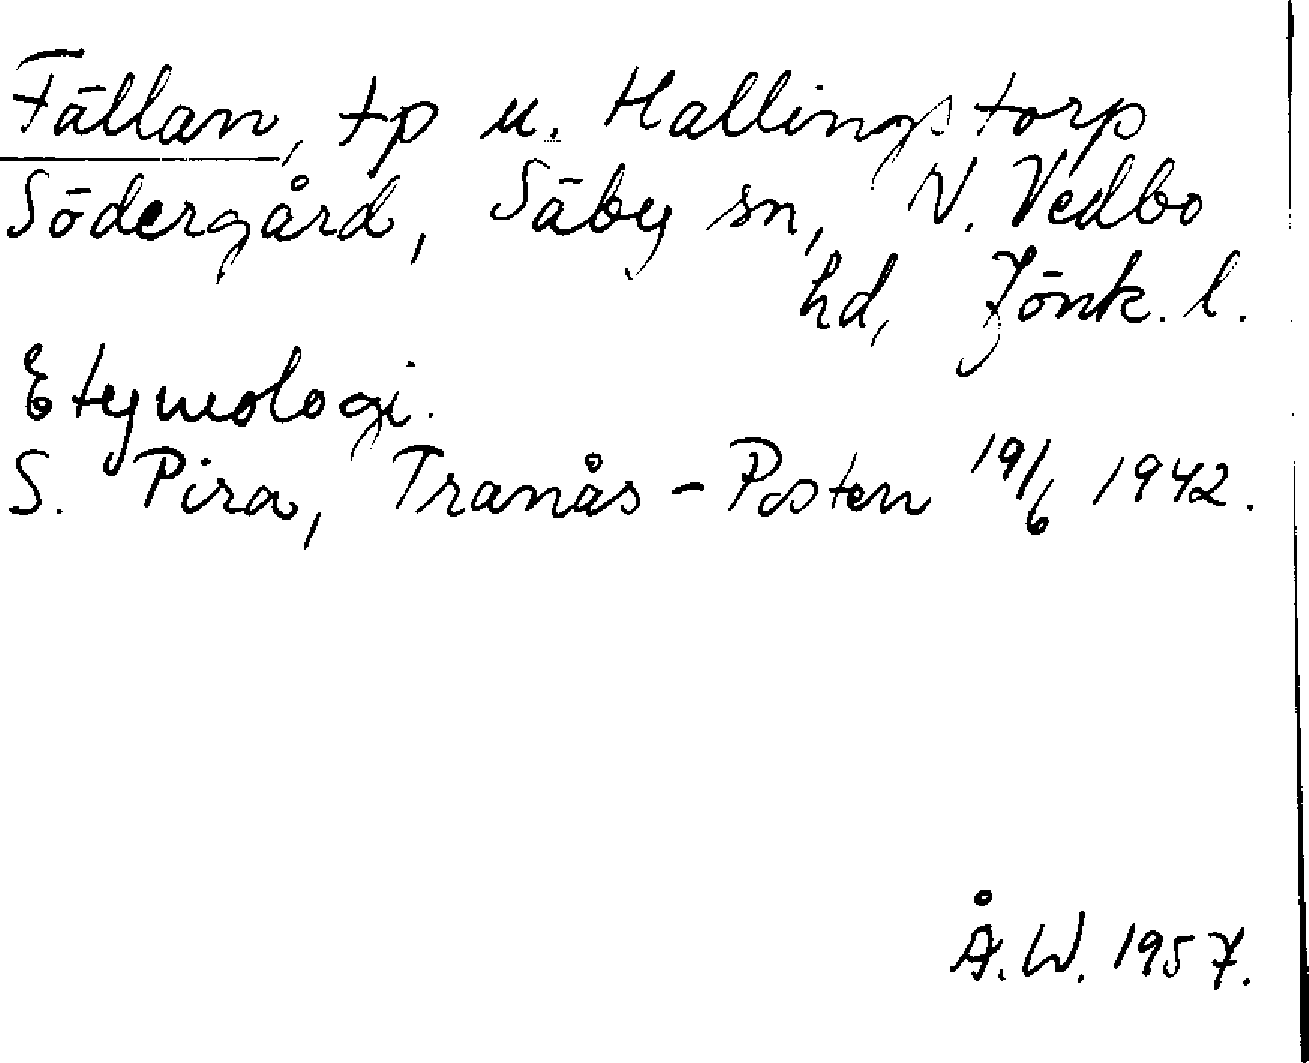 Fällan, tp u. Hallingstorp
Södergård, Säby sn, N. Vedbo
hd, Jönk. l.
Etymologi.
S. Pira, Tranås-Posten 19/6 1942.
Å. W. 1957.